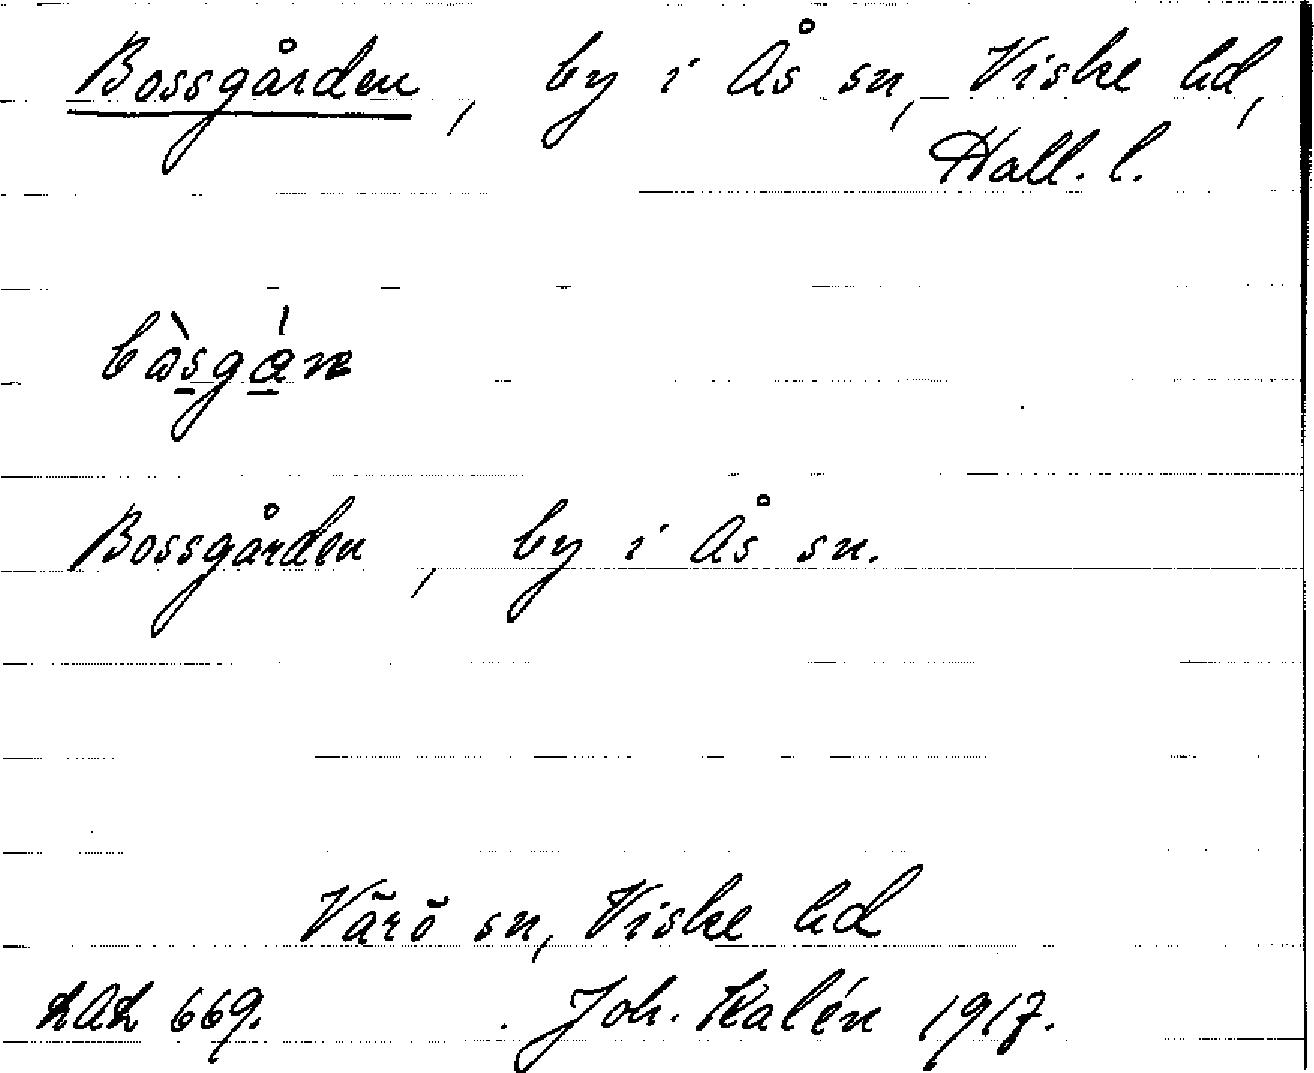 Bossgården, by i Ås sn, Viske hd,
Hall. l.
bòsgán
Bossgården, by i Ås sn.
Värö sn, Viske hd
LAL 669. Joh. Kalén 1917.